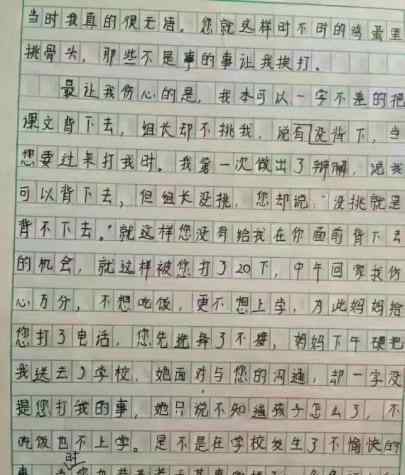 当时我真的很无语。您就这样时不时的鸡蛋里
挑骨头，那些不是事的事让我挨打。
最让我伤心的是，我本可以一字不差的把
课文背下去，组长却不挑我，说有没背下，当
您要过来打我时。我第一次做出了辩解，说我
可以背下去，但组长没挑，您却说，“没挑就是
背不下去。”就这样您没有给我在你面前背下去
的机会，就这样被您打了20下，中午回家我伤
心万分，不想吃饭，更不想上学，为此妈妈给
您打了电话，您先选择了不接，妈妈下午硬把
我送去了学校，她面对与您的沟通，却一字没
提您打我的事，她只说不知道孩子怎么了，不
吃饭也不上学。是不是在学校发生了不愉快的
时